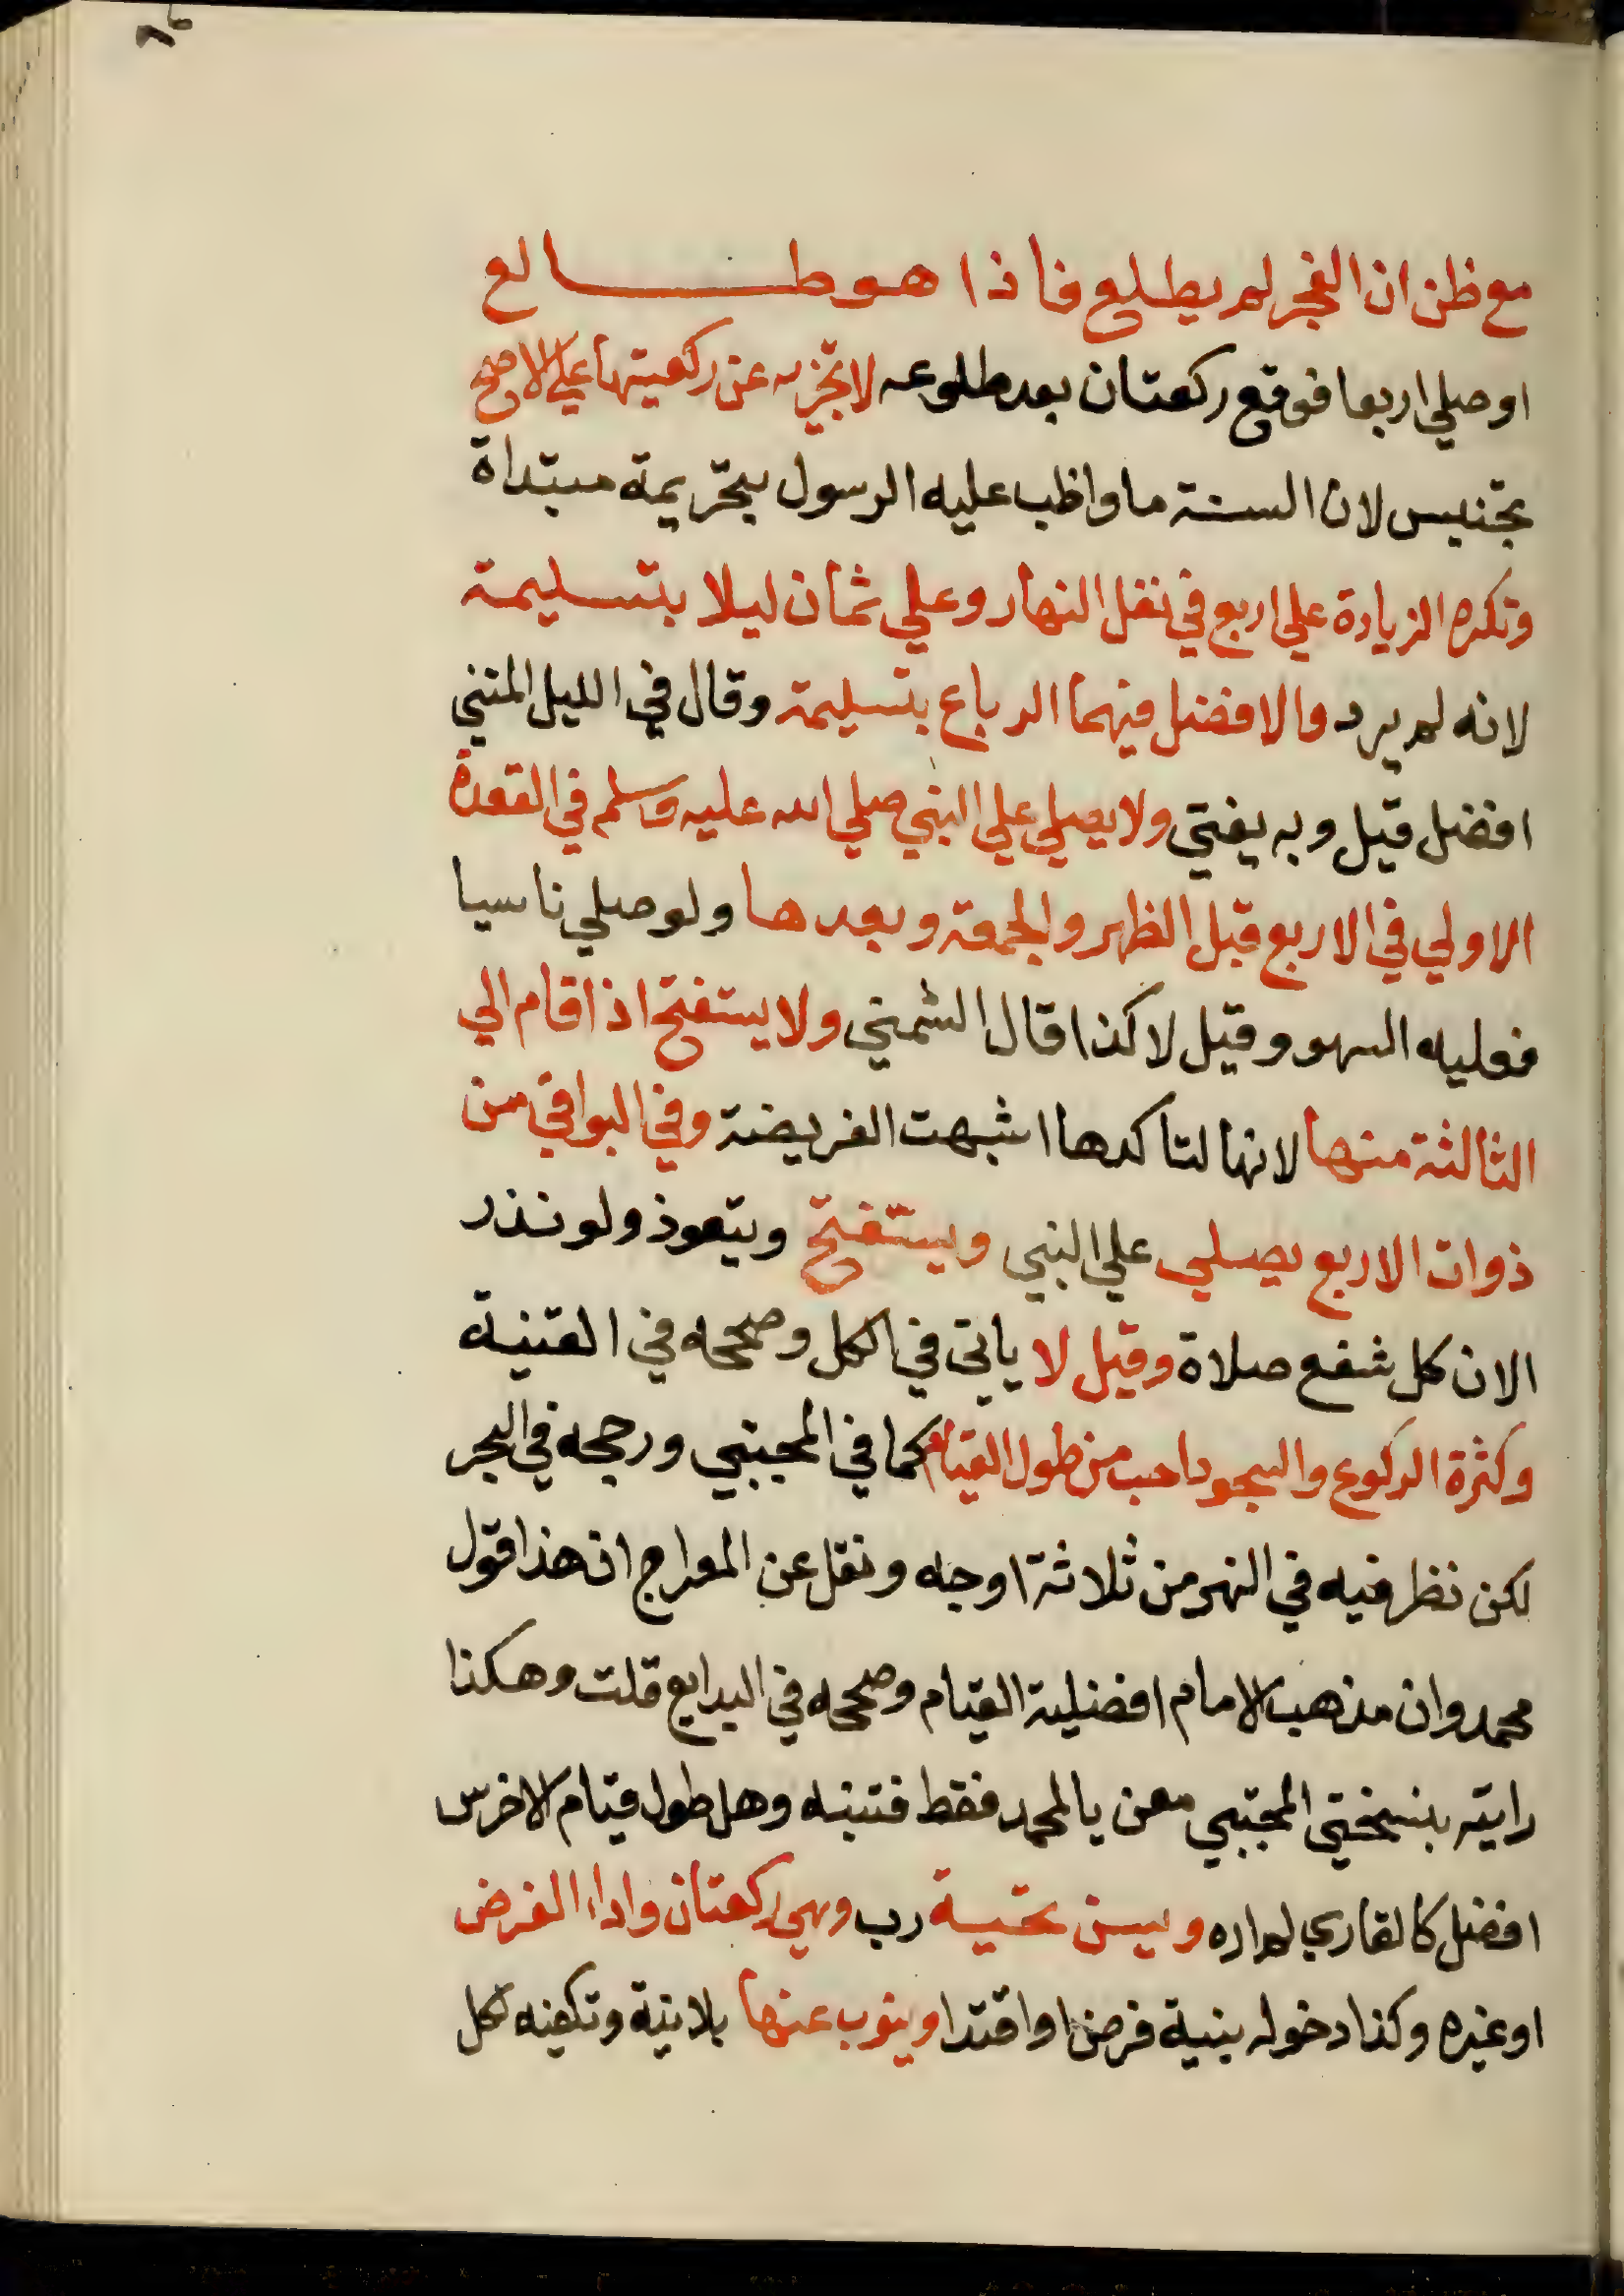 مع ظن ان الفجر لم يطلع فاذا هو طالع
او صلي اربعا فوقع ركعتان بعد طلوعه لا تجزيه عن ركعيتها علي الاصح
تجنيس لان السنة ما واظب عليه الرسول بتحريمة مبتداة
وتكره الزيادة علي اربع في نفل النهار وعلي ثمان ليلا بتسليمة
لانه لم يرد والافضل فيهما الرباع بتسليمة وقال في الليل المثني
افضل قيل وبه يفتي ولا يصلي علي النبي صلي الله عليه وسلم في القعدة
الاولي في الاربع قبل الظهر والجمعة وبعدها ولو صلي ناسيا
فعليه السهو وقيل لا كذا قال الشمني ولا يستفتح اذا قام الي
الثالثة منها لانها لتاكدها اشبهت الفريضة وفي البواقي من
ذوات الاربع يصلي علي النبي ويستفتح ويتعوذ ولو نذر
الان كل شفع صلاة وقيل لا ياتي في الكل وصححه في القنية
وكثرة الركوع والسجود احب من طول القيام كما في المجتبي ورجحه في البحر
لكن نظر فيه في النهر من ثلاثة اوجه ونقل عن المعراج ان هذا قول
محمد وان مذهب الامام افضلية القيام وصححه في البدايع قلت وهكذا
رايته بنسختي المجتبي معن يالمحمد فقط فتنبه وهل طول قيام الاخرس
افضل كالقاري لم اره ويسن تحية رب وهي ركعتان واداء الفرض
او غيره وكذا دخوله بنية فرض او اقتدا وينوب عنها بلا نية وتكفيه لكل